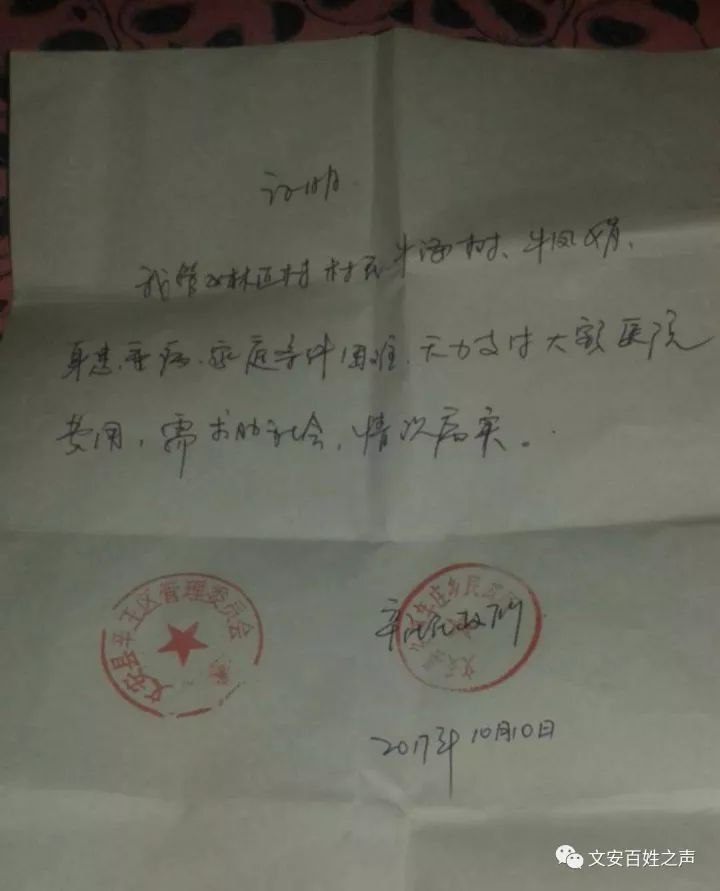 证明
我管 村 村民牛 树、牛凤娟、
身患重病.家庭条件困难.无力支付大额医院
费用,需求助社会,情况属实。
文安县辛王区管理委员会
民政所
2017年10月10日
文安百姓之声